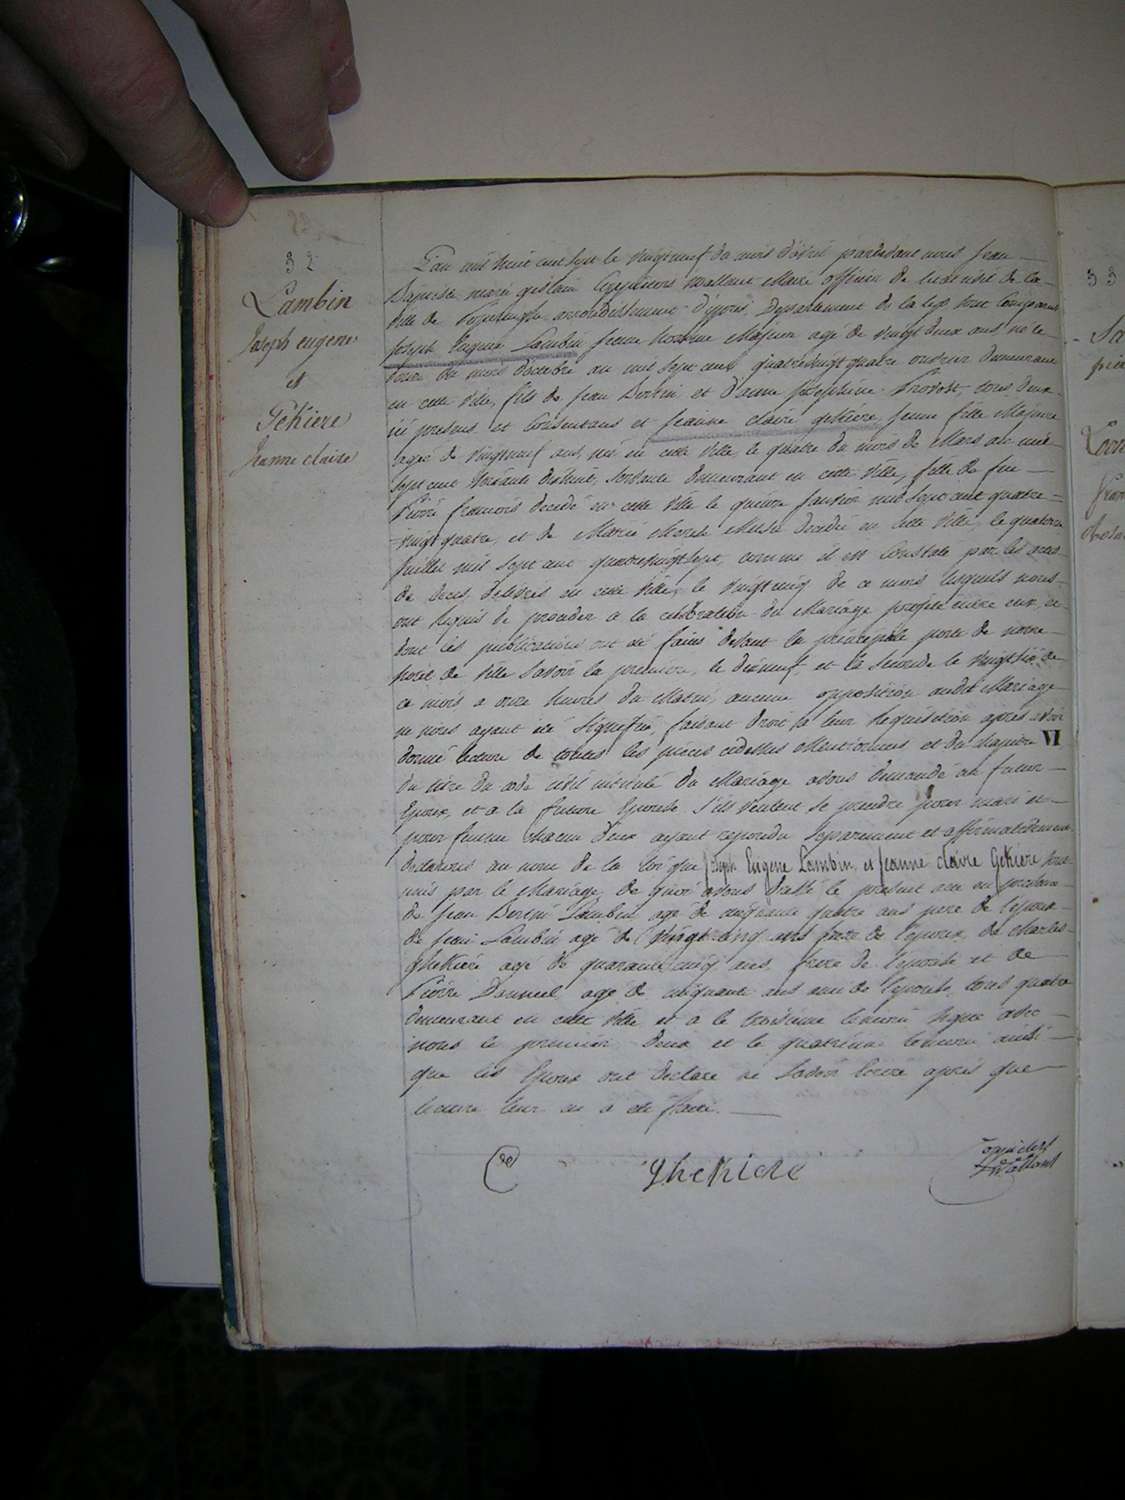 32
Lambin
Joseph eugene
et
Gekiere
Jeanne claire
L'an mil huit cent sept le vingtneuf du mois d'avril pardevant nous Jean
Baptiste marie gislain wallaert Maire officier de l'etat civil de la
ville de arrondissement d'ypres, Departement de la Lys sont comparus
Joseph Eugene Lambin jeune homme Majeur agé de vingt deux ans né le
du mois d'octobre an mil sept cent quatrevingt quatre demeurant
en cette ville, fils de Jean Bertin et d'anne Josephine Provost, tous deux
ici presens et Consentans et Jeanne claire gekiere jeune fille Majeure
agée de vingtneuf ans, née en cette ville, le quatre du mois de Mars an mil
sept cent soixante dixhuit, servante demeurant en cette ville, fille de feu
Pierre francois decedé en cette ville le quinze Janvier mil sept cent quatre
vingt quatre, et de Marie decedée en cette ville, le quatorze
Juillet mil sept cent quatrevingt sept, comme il est constaté par les actes
de deces delivrés en cette ville, le vingtcinq de ce mois lesquels nous
ont requis de proceder a la celebration du Mariage projetté entre eux, et
dont les publications ont été faites devant la principale porte de notre
hotel de ville Savoir la premiere, le dixneuf, et la seconde le vingtsix de
ce mois a onze heures du Matin, aucune opposition audit Mariage
ne nous ayant été signifiée, faisant droit a leur requisition après avoir
donné lecture de toutes les pieces cidessus Mentionnées et du chapitre VI
du titre du code civil intitulé du Mariage avons demandé au futur
Epoux, et a la future Epouse s'ils veulent se prendre pour mari et
pour femme chacun d'eux ayant repondu separement et affirmativement
declarons au nom de la loi que Joseph Eugene Lambin et Jeanne claire Gekiere sont
unis par le Mariage de quoi avons dressé le present acte en presence
de Jean Bertin Lambin agé de cinquante quatre ans pere de l'epoux
de Jean Lambin agé de vingt cinq ans frere de l'epoux, de Charles
ghekiere agé de quarante cinq ans, frere de l'epouse et de
Pierre agé de cinquante ans ami de l'epouse, tous quatre
demeurant en cette ville et a le troisieme temoin signé avec
nous le premier, deux et le quatrieme temoin ainsi
que les Epoux ont declaré ne savoir ecrire après que
lecture leur en a été faite.
ghekiere
33